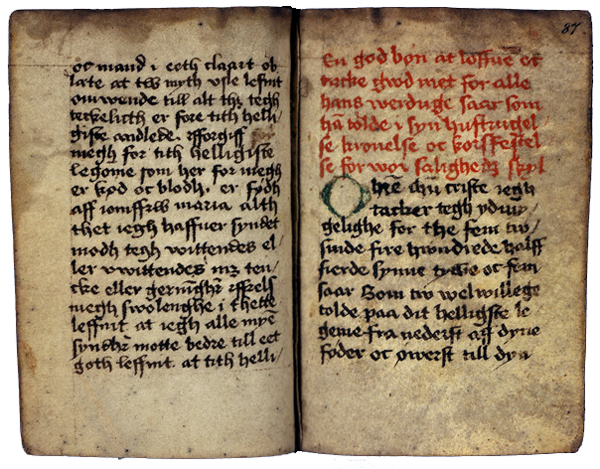 oc mand i eeth claart ob
late at tw myth vsle leffnit
omwende till alt thz tegh
teckelicth er fore tith helli
giste andlede. Ifforgiff
megh for tith helligiste
legome som her for megh
er kød oc blodh. er født
aff iomffrw maria alth
thet iegh haffuer syndet
modh tegh vittendes el
ler vwittendes mz ten
cke eller gerningher
megh swolenghe i thette
leffnit at iegh alle myne
syndher motte bedre till eet
goth leffnit. at tith helli
87
En god bøn at loffue oc
tacke gwd met for alle
hans werduge saar som
han tolde i syn hustrugel
se kronelse oc korsfestel
se for wor salighedz skyl
O hrre ihu criste iegh
tacker tegh ydmy
gelighe for the fem tw
sinde fire hwndrede halff
fierde synne tywe oc fem
saar Som tw wel willege
tolde paa dit helligste le
geme fra nederst aff dyne
føder oc øwerst till dyn